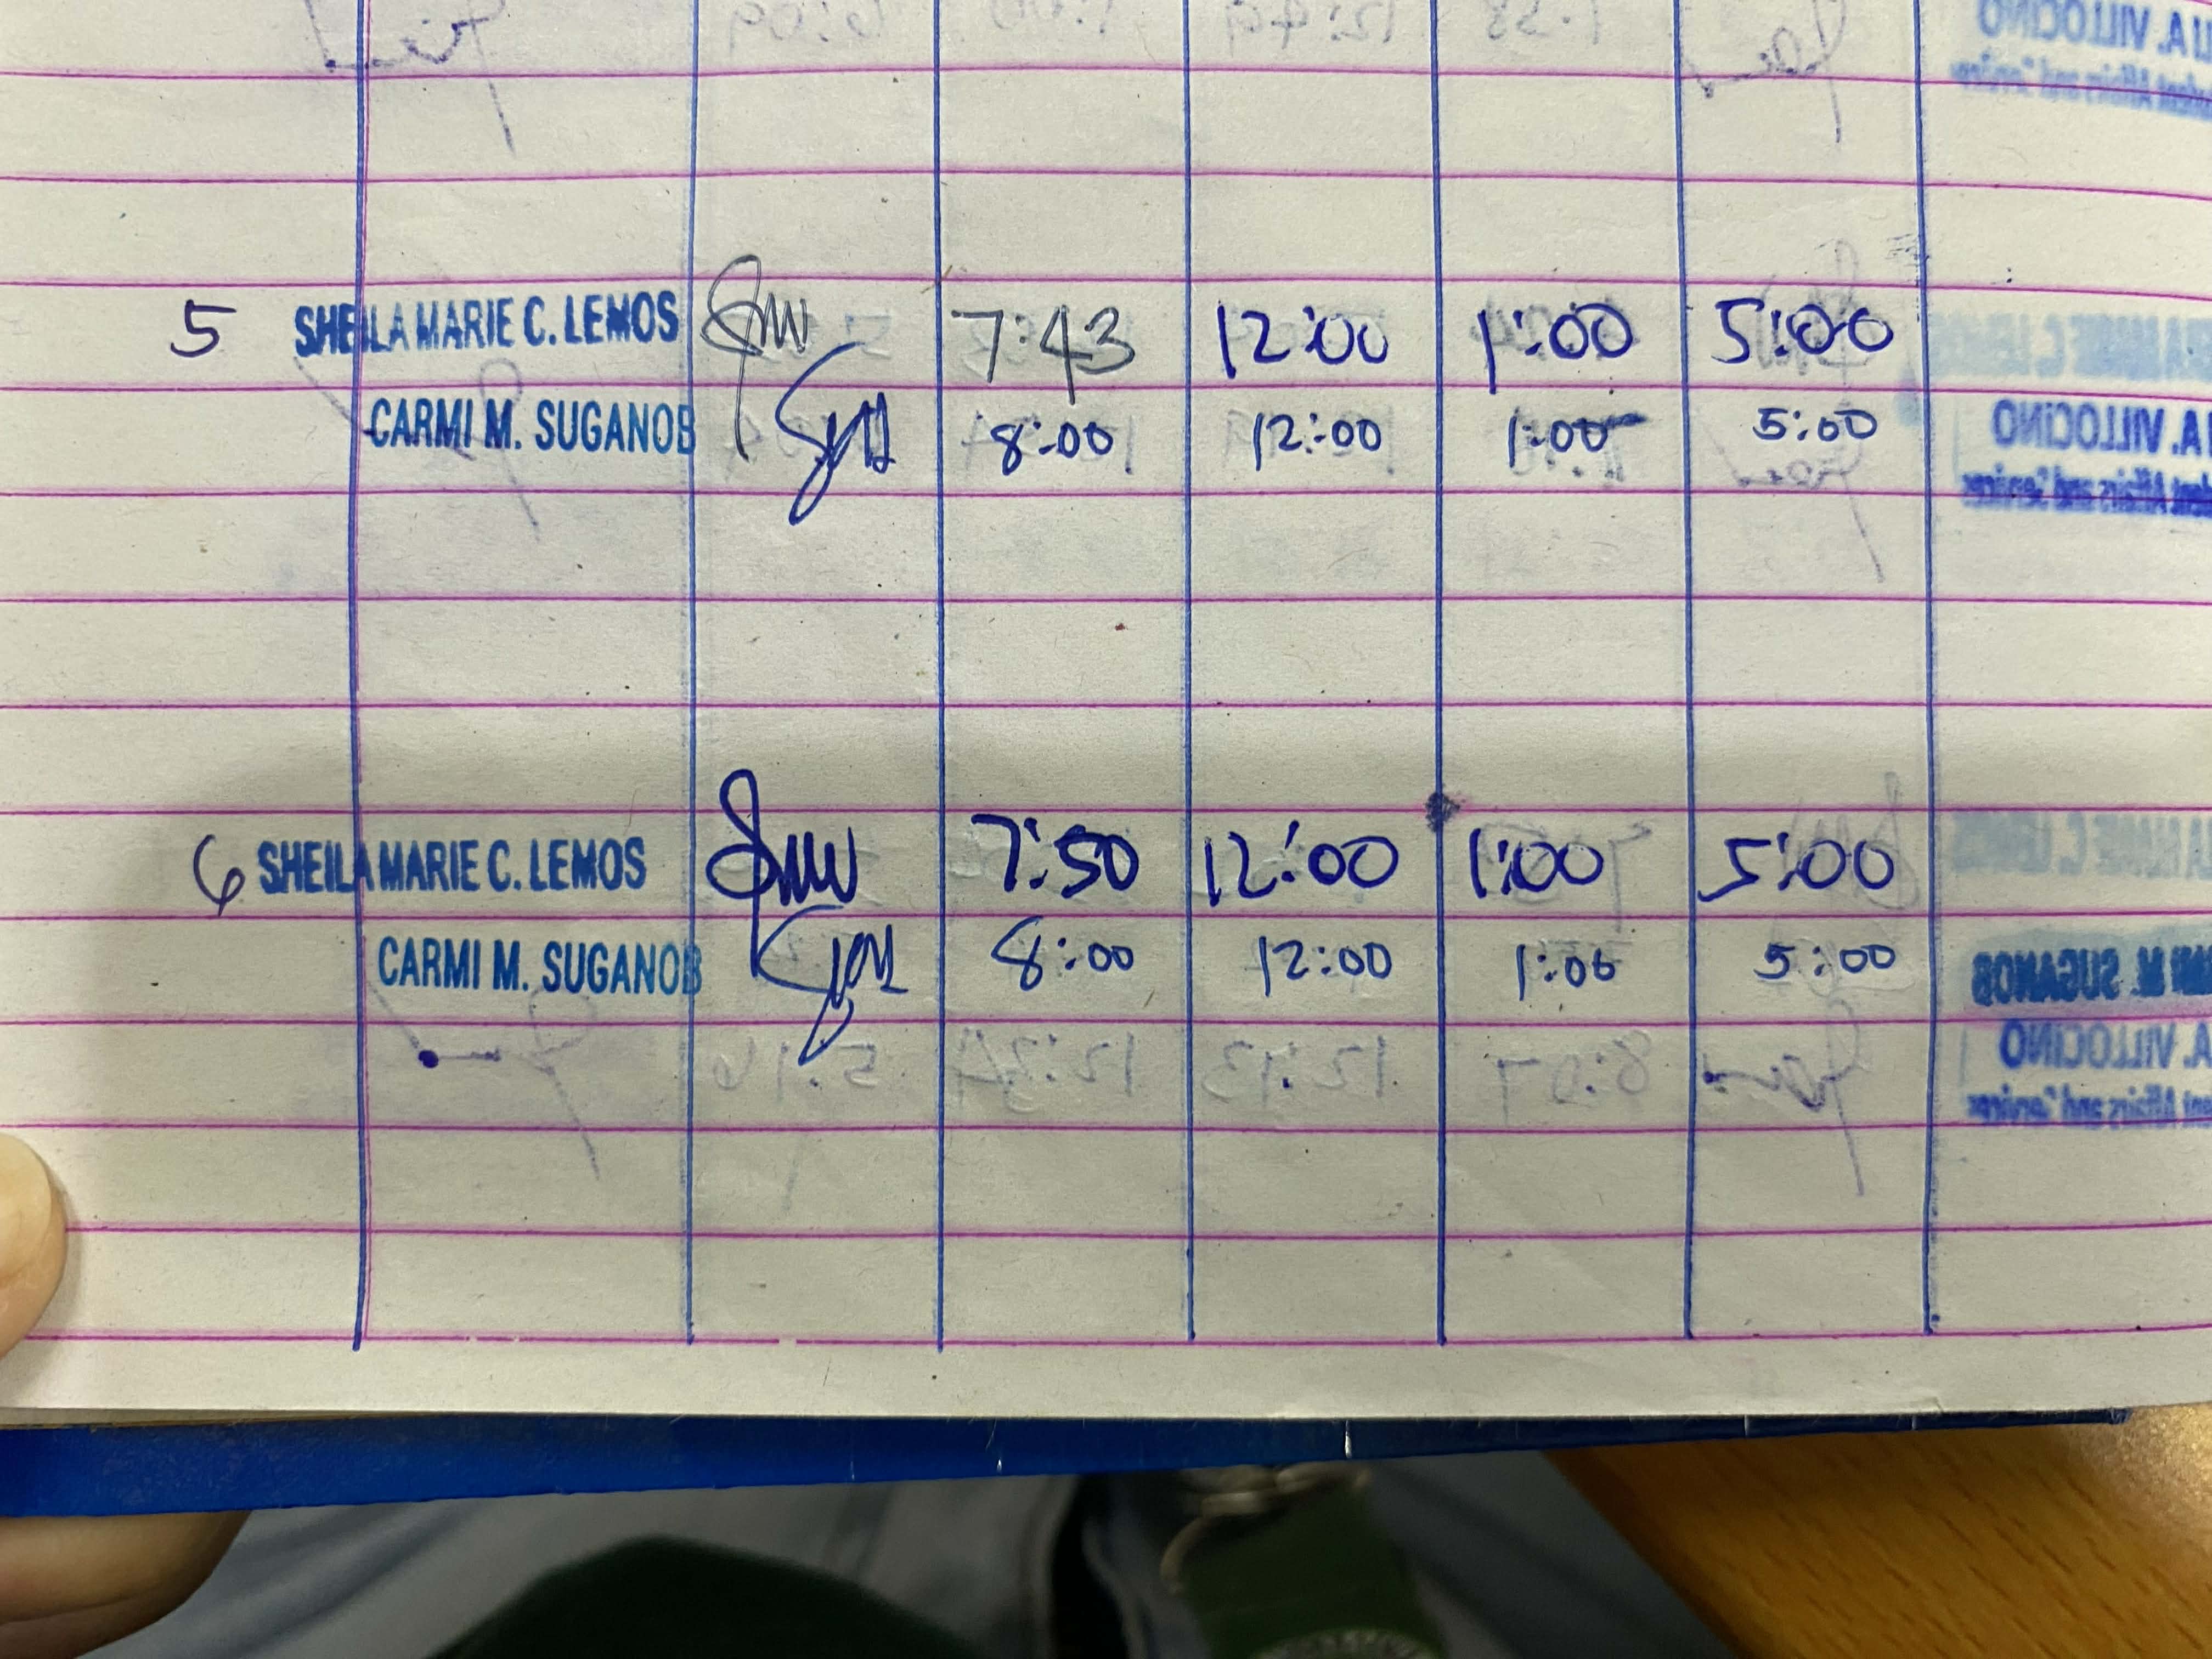 5 SHEILA MARIE C. LEMOS 7:43 12:00 1:00 5:00
CARMI M. SUGANOB 8:00 12:00 1:00 5:00
6 SHEILA MARIE C. LEMOS 7:50 12:00 1:00 5:00
CARMI M. SUGANOB 8:00 12:00 1:00 5:00